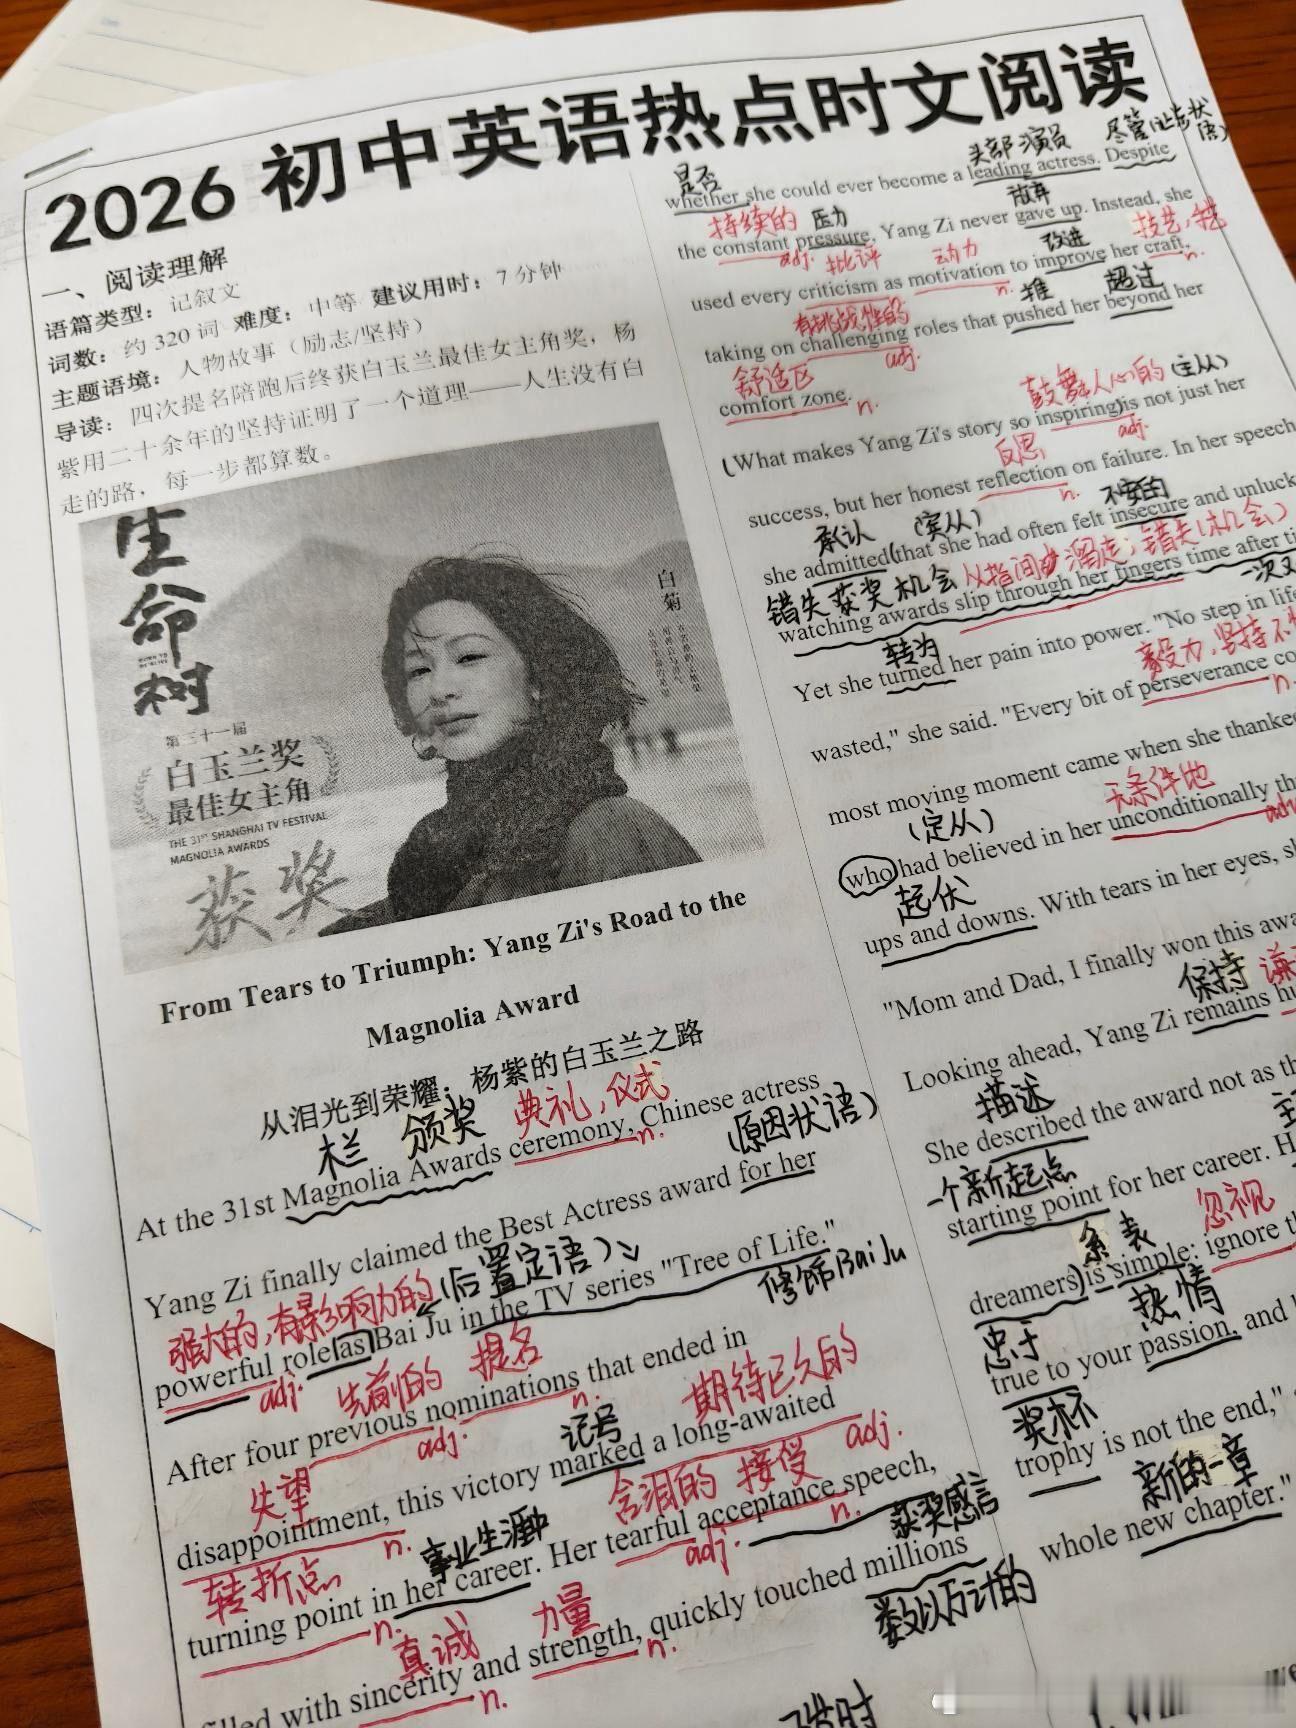 2026 初中英语热点时文阅读
一、阅读理解
语篇类型：记叙文
词数：约 320 词 难度：中等 建议用时：7 分钟
主题语境：人物故事（励志/坚持）
导读：四次提名陪跑后终获白玉兰最佳女主角奖，杨
紫用二十余年的坚持证明了一个道理——人生没有白
走的路，每一步都算数。
生命树
白菊
第三十一届
白玉兰奖
最佳女主角
THE 31ST SHANGHAI TV FESTIVAL
MAGNOLIA AWARDS
获奖
From Tears to Triumph: Yang Zi's Road to the
Magnolia Award
从泪光到荣耀：杨紫的白玉兰之路
木兰 颁奖 典礼，仪式
(原因状语)
At the 31st Magnolia Awards ceremony, Chinese actress
n.
Yang Zi finally claimed the Best Actress award for her
强大的，有影响力的 (后置定语)
修饰Bai Ju
powerful role as Bai Ju in the TV series "Tree of Life."
adj. 先前的 提名
n.
After four previous nominations that ended in
adj.
失望 记号 期待已久的
adj.
disappointment, this victory marked a long-awaited
n.
转折点 事业生涯中 含泪的 接受
n.
turning point in her career. Her tearful acceptance speech,
n. adj.
获奖感言
真诚 力量
filled with sincerity and strength, quickly touched millions
n. n.
数以万计的
是否 头部演员 尽管(让步状语)
whether she could ever become a leading actress. Despite
持续的 压力 放弃
the constant pressure, Yang Zi never gave up. Instead, she
adj. 批评 动力 改进 技艺，
used every criticism as motivation to improve her craft,
n. n.
有挑战性的 推 超过
taking on challenging roles that pushed her beyond her
adj.
舒适区
comfort zone.
n.
鼓舞人心的 (主从)
(What makes Yang Zi's story so inspiring) is not just her
adj.
反思
success, but her honest reflection on failure. In her speech
n.
承认 (宾从) 不安的
she admitted (that she had often felt insecure and unluck
错失获奖机会 从指间溜走；错失(机会)
watching awards slip through her fingers time after ti
一次又
转为
Yet she turned her pain into power. "No step in life
毅力，坚持不
wasted," she said. "Every bit of perseverance co
n.
most moving moment came when she thanked
(定从) 无条件地
who had believed in her unconditionally th
起伏
ups and downs. With tears in her eyes, sh
"Mom and Dad, I finally won this awa
保持
Looking ahead, Yang Zi remains hu
描述
She described the award not as th
一个新起点
starting point for her career. H
系表 忽视
dreamers) is simple: ignore t
忠于 热情
true to your passion, and
奖杯
trophy is not the end,"
新的一章
whole new chapter."